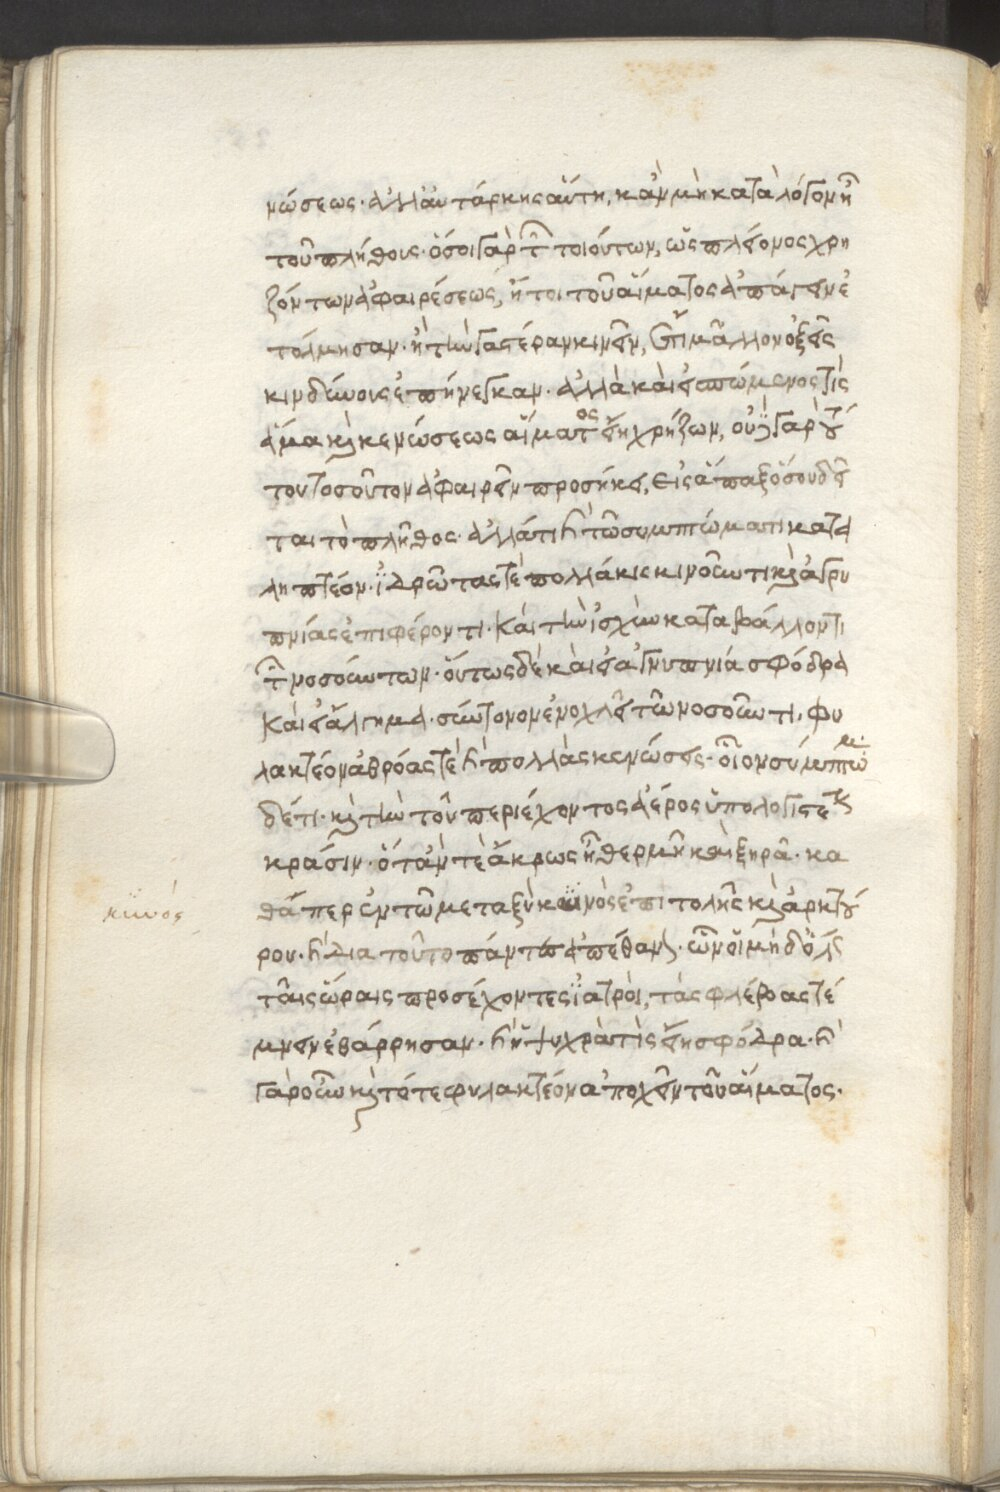 μώσεως· ἀλλ' ἀυτάρκης ἅυτη, κἀν μὴ κατα λόγον ἦ
τοῦ πλήθους· ὅσοι γαρ τῶν τοιούτων, ὡς πλείονος χρη
ζόντων ἀφαιρέσεως, ἤτοι τοῦ αἵματος ἀπάγειν ἐ
τόλμησαν· ἢ τὴν γαστέραν κινεῖν, ἔτι μᾶλλον ὀξεῖς
κινδύνοις ἐπήνεγκαν· ἀλλὰ καὶ εἰ πώμενος τίς
ἅμα καὶ κενώσεως αἵματος εἴη χρήζων, οὐδὲ γαρ τού
του τοσοῦτον ἀφαιρεῖν προσήκει, εἰς ἅπαξ ὅσου δεῖ
ται τὸ πλῆθος· ἀλλάτι καὶ τῶ συμπτώματι κατα
λη πτέον· ἱδρῶτας τὲ πολλάκις κινοῦντι καὶ ἀγρυ
πνίας ἐπιφέροντι· Καὶ τὴν ἰσχὺν καταβάλλοντι
τῶν νοσούντων· ὅυτως δὲ καὶ εἰ ἀγρυπνιά σφόδρα
Καὶ εἰ ἄλγημα· σύντονον ἐνοχλεῖ τῶ νοσοῦντι, φυ
λακτέον ἀθρόας τὲ καὶ πολλὰς κενώσεις· οἷον σύμπτωμ
δέ τι· καὶ τὴν τοῦ περιέχοντος ἀέρος ὑπολογιστέον
κράσιν· ὅταν τὲ ἄκρως ἦ θερμὴ καὶ ξηρὰ· κα
θάπερ ἐν τῶ μεταξὺ κυνὸς ἐπιτολῆς καὶ ἀρκτού
ρου· καὶ δια τοῦτο πάντες ἀπέθανον· ὧν οἱ μὴδ' ὅλως
ταῖς ὥραις προσέχοντες ἰατροὶ, τὰς φλέβας τέ
μνειν ἐθάρρησαν· καὶ ἢ ψυχρὰ τὶς εἴη σφόδρα· καὶ
γὰρ οὖν καὶ τότε φυλακτέον ἀποχεῖν τοῦ αἵματος·
κυνὸς